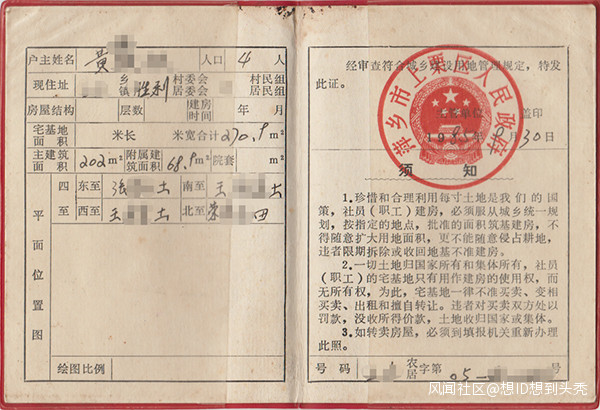 户主姓名 黄 人口 4 人
现住址 乡镇 胜利 村委会居委会 村民组居民组
房屋结构 层数 建房时间 年 月
宅基地面积 米长 米宽合计270.9m²
主建筑面积 202m² 附属建筑面积 68.9m² 院套 m²
四至 东至 土 南至 王 土
西至 王 土 北至 荣 田
平面位置图
绘图比例
经审查符合城乡建设用地管理规定,特发
此证。
萍乡市上栗区人民政府
盖印
9月30日
须 知
1.珍惜和合理利用每寸土地是我们的国
策,社员(职工)建房,必须服从城乡统一规
划,按指定的地点,批准的面积筑基建房,不
得随意扩大用地面积,更不能随意侵占耕地,
违者限期拆除或收回地基不准建房。
2.一切土地归国家所有和集体所有,社员
(职工)的宅基地只有用作建房的使用权,而
无所有权,为此,宅基地一律不准买卖、变相
买卖、出租和擅自转让。违者对买卖双方处以
罚款,没收所得价款,土地收归国家或集体。
3.如转卖房屋,必须到填报机关重新办理
此照。
号码 农居字第 05- 号
风闻社区@想ID想到头秃